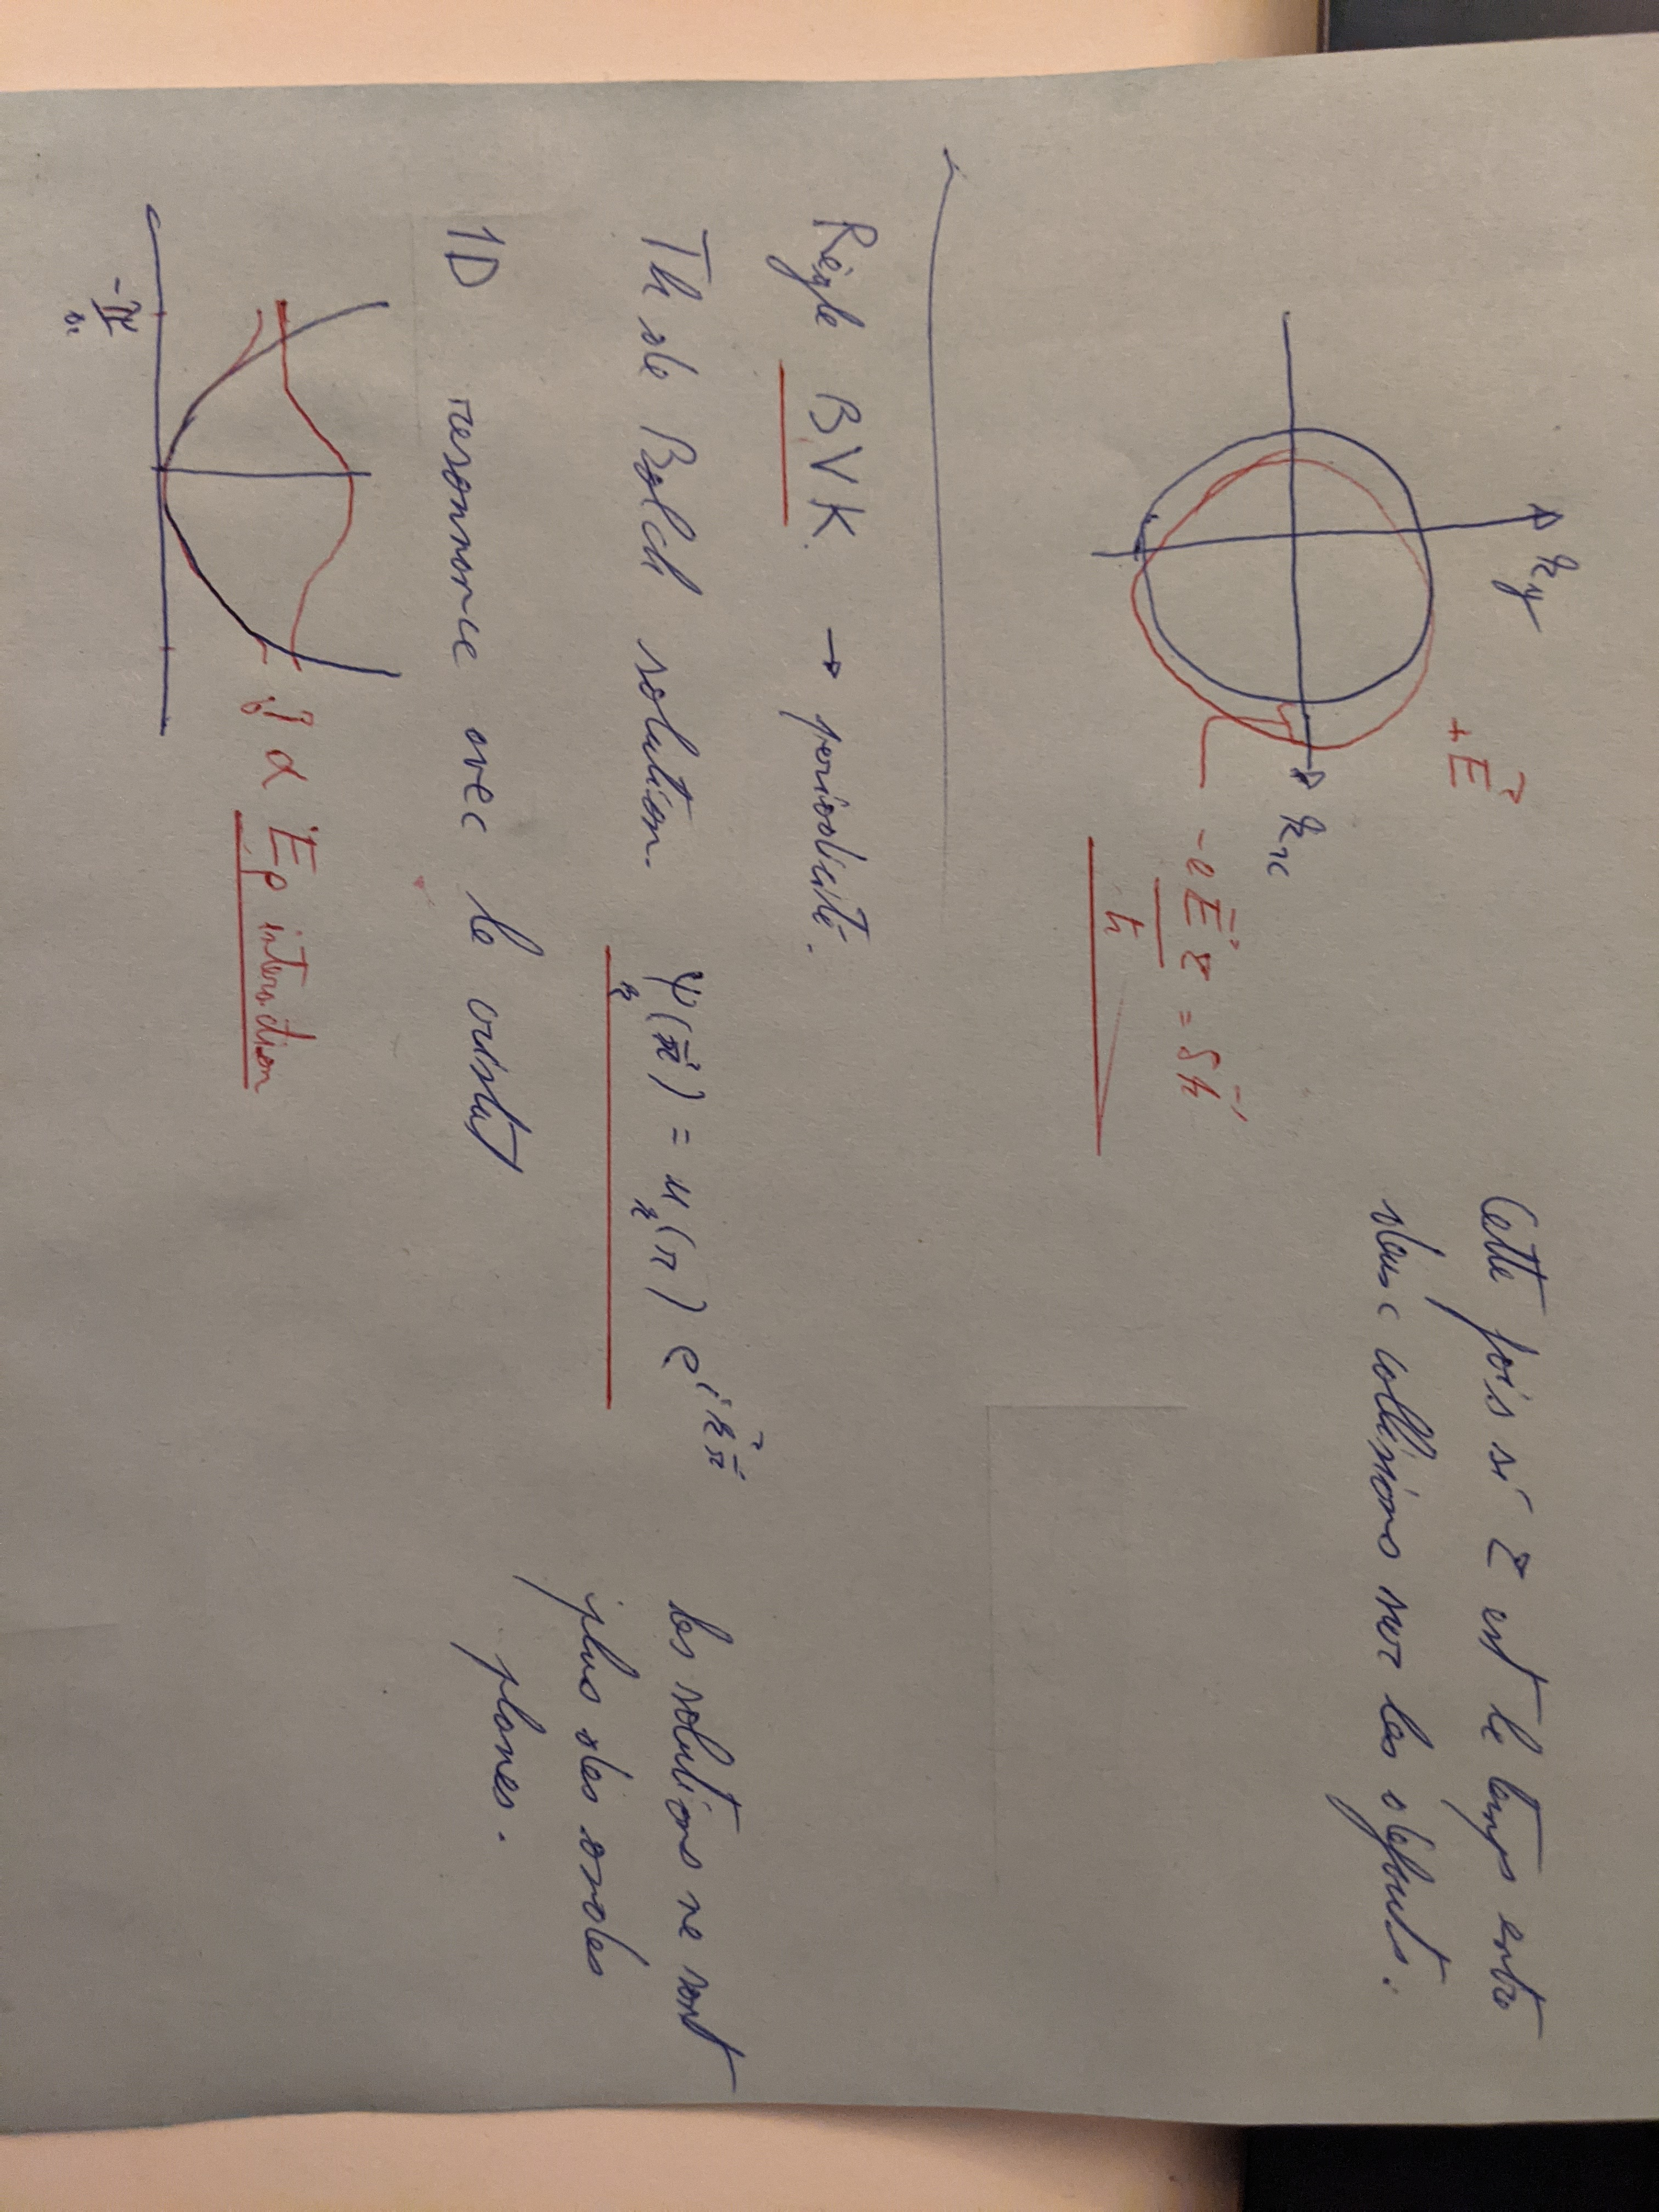 k_y
+E⃗
k_x
-eE⃗τ/ħ = δk⃗
Cette fois si τ est le temps entre
deux collisions sur les défauts.
Règle BVK → periodicité.
Th de Bolch solution. ψ_k(r⃗) = u_k(r) e^{i k⃗ r⃗}
les solutions ne sont
plus des ondes
planes.
1D resonnance avec le cristal
} α Ep interaction
-π/a